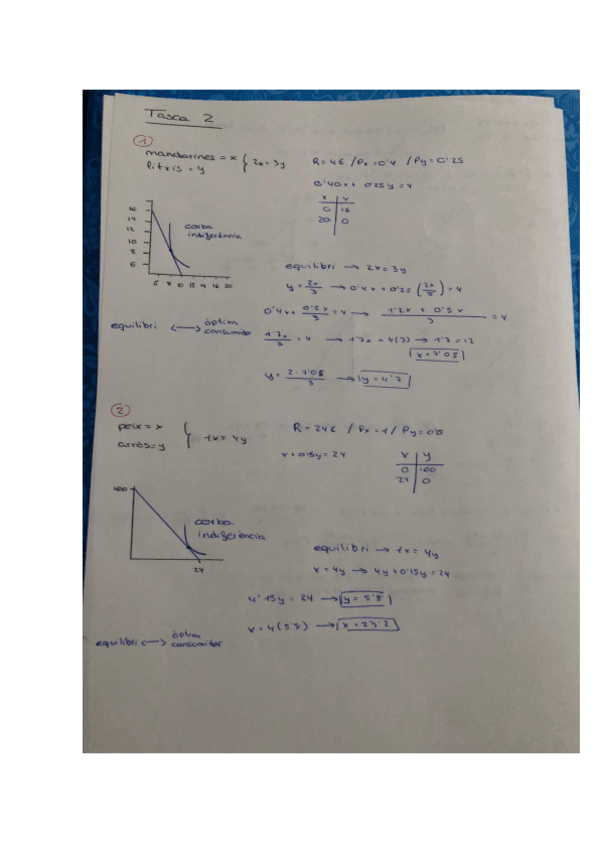 Tasca 2
1
mandarines = x { 2x = 3y
litxis = y
R = 4€ / Px = 0'4 / Py = 0'25
0'40x + 0'25y = 4
x y
0 16
20 0
16
14
12
10
8
6
corba
indiferència
6 8 10 12 14 16 20
equilibri → 2x = 3y
y = 2x/3 → 0'4x + 0'25 (2x/3) = 4
0'4x + 0'5x/3 = 4 → 1'2x + 0'5x/3 = 4
equilibri ↔ òptim
consumidor
1'7x/3 = 4 → 1'7x = 4(3) → 1'7 = 12
x = 7'05
y = 2·7'05/3 → y = 4'7
2
peix = x
arròs = y { 1x = 4y
R = 24€ / Px = 1 / Py = 0'15
x + 0'15y = 24
x y
0 160
24 0
160
corba
indiferència
24
equilibri → 1x = 4y
x = 4y → 4y + 0'15y = 24
4'15y = 24 → y = 5'8
x = 4(5'8) → x = 23'2
equilibri ↔ òptim
consumidor